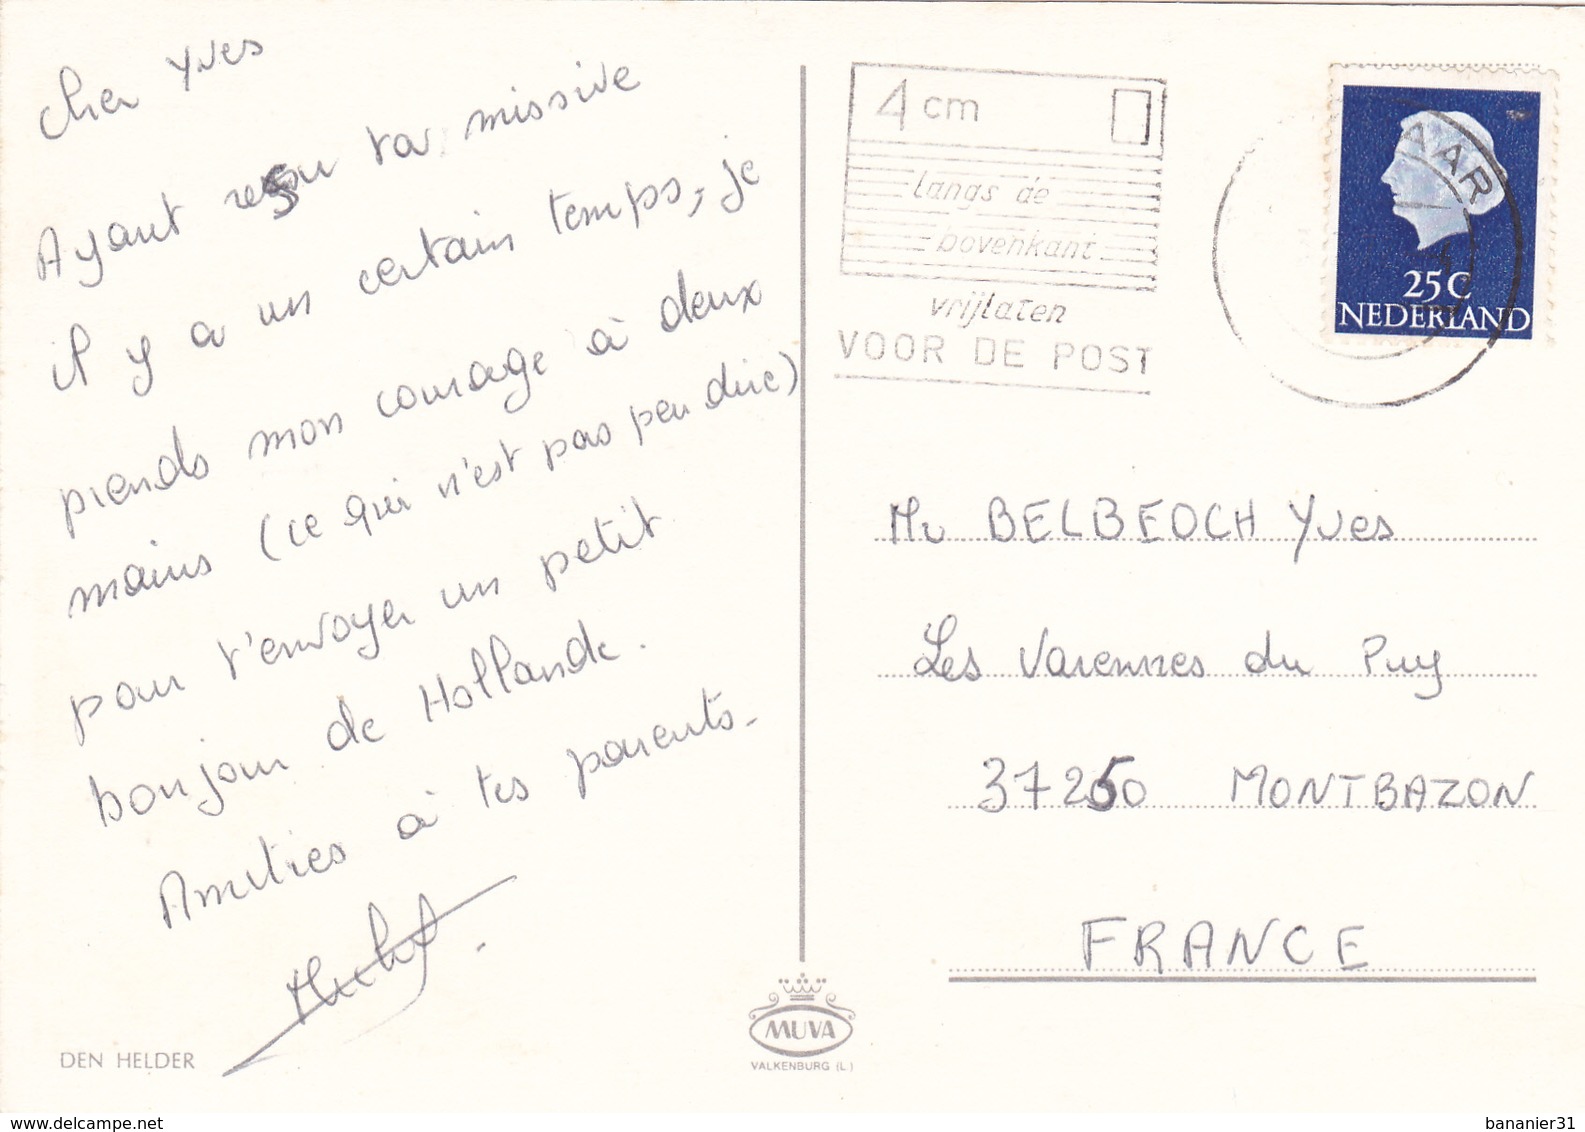 Cher Yves
Ayant reçu ta missive
il y a un certain temps, je
prends mon courage à deux
mains (ce qui n'est pas peu dire)
pour t'envoyer un petit
bonjour de Hollande.
Amitiés à tes parents.
DEN HELDER
MUVA
VALKENBURG (L.)
4 cm
langs de
bovenkant
vrijlaten
VOOR DE POST
AAR
25 C
NEDERLAND
Mr BELBEOCH Yves
Les Varennes du Puy
37250 MONTBAZON
FRANCE
bananier31